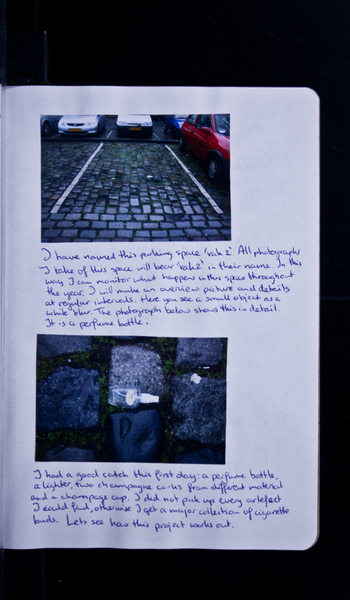 I have named this parking space 'vak 2'. All photographs
I take of this space will bear 'vak2' in their name. In this
way I can monitor what happens in this space throughout
the year. I will make an overview picture and details
at regular intervals. Here you see a small object as a
white blur. The photograph below shows this in detail.
It is a perfume bottle.
I had a good catch this first day: a perfume bottle,
a lighter, two champagne corks from different material
and a champage cap. I did not pick up every artefact
I could find, otherwise I get a major collection of cigarette
buds. Lets see how this project works out.